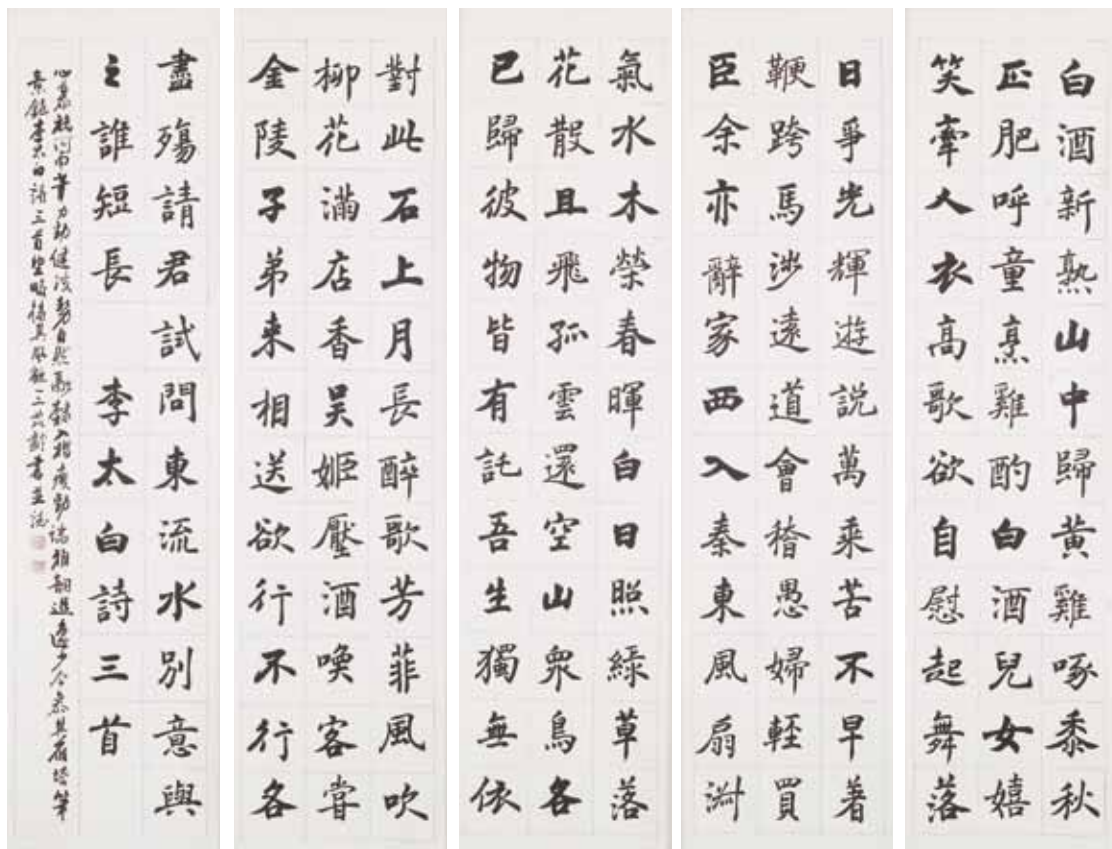 白酒新熟山中歸黄雞啄黍秋
正肥呼童烹雞酌白酒兒女嬉
笑牽人衣高歌欲自慰起舞落
日爭光輝遊説萬乘苦不早著
鞭跨馬涉遠道會稽愚婦輕買
臣余亦辭家西入秦東風扇淑
氣水木榮春暉白日照綠草落
花散且飛孤雲還空山眾鳥各
已歸彼物皆有託吾生獨無依
對此石上月長醉歌芳菲風吹
柳花滿店香吳姬壓酒喚客嘗
金陵子弟来相送欲行不行各
盡殤請君試問東流水別意與
之誰短長 李太白詩三首
筆力勁健 自然 隸入楷
李太白詩三首